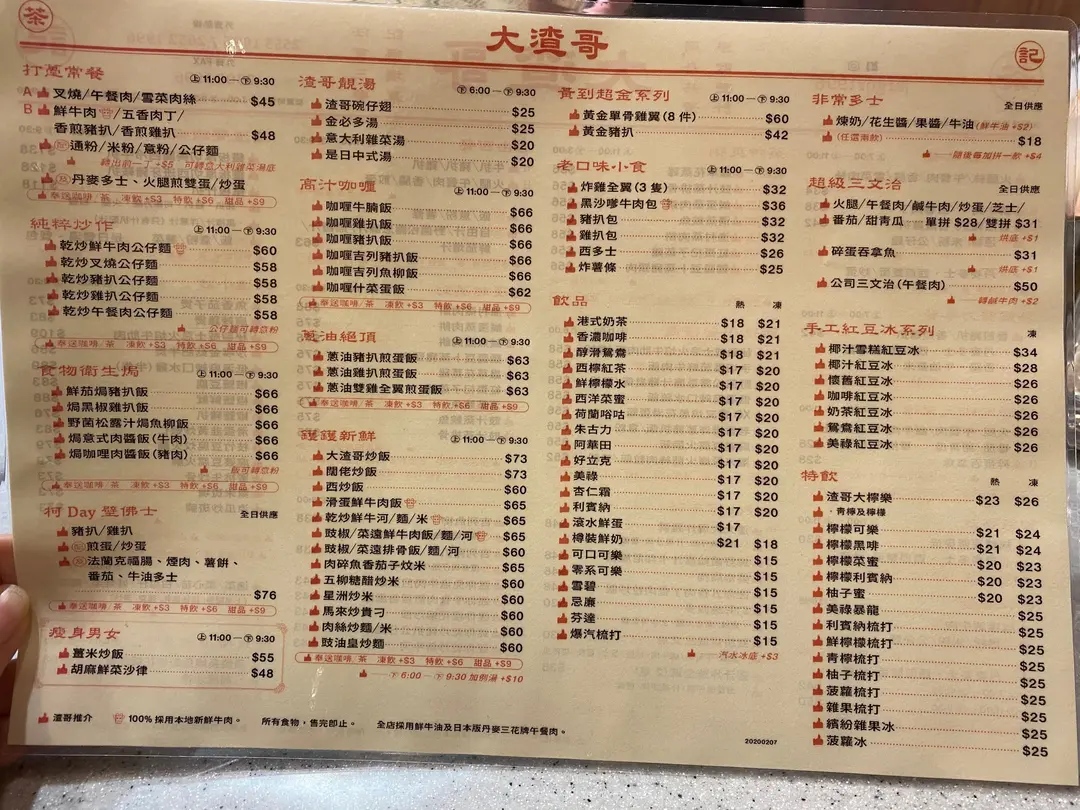 茶
大渣哥
記
打葱常餐 上11:00—下9:30
A 叉燒/午餐肉/雪菜肉絲 $45
B 鮮牛肉/五香肉丁/
香煎豬扒/香煎雞扒 $48
通粉/米粉/意粉/公仔麵
轉出前一丁+$5 可轉意大利雜菜湯底
丹麥多士、火腿煎雙蛋/炒蛋
奉送咖啡/茶 凍飲+$3 特飲+$6 甜品+$9
純粹炒作 上11:00—下9:30
乾炒鮮牛肉公仔麵 $60
乾炒叉燒公仔麵 $58
乾炒豬扒公仔麵 $58
乾炒雞扒公仔麵 $58
乾炒午餐肉公仔麵 $58
公仔麵可轉意粉
奉送咖啡/茶 凍飲+$3 特飲+$6 甜品+$9
食物衛生焗 上11:00—下9:30
鮮茄焗豬扒飯 $66
焗黑椒雞扒飯 $66
野菌松露汁焗魚柳飯 $66
焗意式肉醬飯(牛肉) $66
焗咖哩肉醬飯(豬肉) $66
飯可轉意粉
奉送咖啡/茶 凍飲+$3 特飲+$6 甜品+$9
柯 Day 璧佛士 全日供應
豬扒/雞扒
煎蛋/炒蛋
法蘭克福腸、煙肉、薯餅、
番茄、牛油多士
$76
奉送咖啡/茶 凍飲+$3 特飲+$6 甜品+$9
瘦身男女 上11:00—下9:30
薑米炒飯 $55
胡麻鮮菜沙律 $48
渣哥靚湯 下6:00—下9:30
渣哥碗仔翅 $25
金必多湯 $25
意大利雜菜湯 $20
是日中式湯 $20
高汁咖喱 上11:00—下9:30
咖喱牛腩飯 $66
咖喱雞扒飯 $66
咖喱豬扒飯 $66
咖喱吉列豬扒飯 $66
咖喱吉列魚柳飯 $66
咖喱什菜蛋飯 $62
奉送咖啡/茶 凍飲+$3 特飲+$6 甜品+$9
蔥油絕頂 上11:00—下9:30
蔥油豬扒煎蛋飯 $63
蔥油雞扒煎蛋飯 $63
蔥油雙雞全翼煎蛋飯 $63
奉送咖啡/茶 凍飲+$3 特飲+$6 甜品+$9
鑊鑊新鮮 上11:00—下9:30
大渣哥炒飯 $73
闊佬炒飯 $73
西炒飯 $60
滑蛋鮮牛肉飯 $65
乾炒鮮牛河/麵/米 $65
豉椒/菜遠鮮牛肉飯/麵/河 $65
豉椒/菜遠排骨飯/麵/河 $60
肉碎魚香茄子炆米 $65
五柳糖醋炒米 $60
星洲炒米 $60
馬來炒貴刁 $60
肉絲炒麵/米 $60
豉油皇炒麵 $60
奉送咖啡/茶 凍飲+$3 特飲+$6 甜品+$9
下6:00—下9:30 加例湯+$10
黃到超金系列 上11:00—下9:30
黃金單骨雞翼(8 件) $60
黃金豬扒 $42
老口味小食 上11:00—下9:30
炸雞全翼(3 隻) $32
黑沙嗲牛肉包 $36
豬扒包 $32
雞扒包 $32
西多士 $26
炸薯條 $25
飲品 熱 凍
港式奶茶 $18 $21
香濃咖啡 $18 $21
醇滑鴛鴦 $18 $21
西檸紅茶 $17 $20
鮮檸檬水 $17 $20
西洋菜蜜 $17 $20
荷蘭唂咕 $17 $20
朱古力 $17 $20
阿華田 $17 $20
好立克 $17 $20
美祿 $17 $20
杏仁霜 $17 $20
利賓納 $17 $20
滾水鮮蛋 $17
樽裝鮮奶 $21 $18
可口可樂 $15
零系可樂 $15
雪碧 $15
忌廉 $15
芬達 $15
爆汽梳打 $15
汽水冰底+$3
非常多士 全日供應
煉奶/花生醬/果醬/牛油(鮮牛油+$2)
(任選兩款) $18
隨後每加拼一款+$4
超級三文治 全日供應
火腿/午餐肉/鹹牛肉/炒蛋/芝士/
番茄/甜青瓜 單拼 $28/雙拼 $31
烘底+$1
碎蛋吞拿魚 $31
烘底+$1
公司三文治(午餐肉) $50
轉鹹牛肉+$2
手工紅豆冰系列 凍
椰汁雪糕紅豆冰 $34
椰汁紅豆冰 $28
懷舊紅豆冰 $26
咖啡紅豆冰 $26
奶茶紅豆冰 $26
鴛鴦紅豆冰 $26
美祿紅豆冰 $26
特飲 熱 凍
渣哥大檸樂 $23 $26
·青檸及檸檬
檸檬可樂 $21 $24
檸檬黑啡 $21 $24
檸檬菜蜜 $20 $23
檸檬利賓納 $20 $23
柚子蜜 $20 $23
美祿暴龍 $25
利賓納梳打 $25
鮮檸檬梳打 $25
青檸梳打 $25
柚子梳打 $25
菠蘿梳打 $25
雜果梳打 $25
繽紛雜果冰 $25
菠蘿冰 $25
渣哥推介 100% 採用本地新鮮牛肉。 所有食物，售完即止。 全店採用鮮牛油及日本版丹麥三花牌午餐肉。
20200207